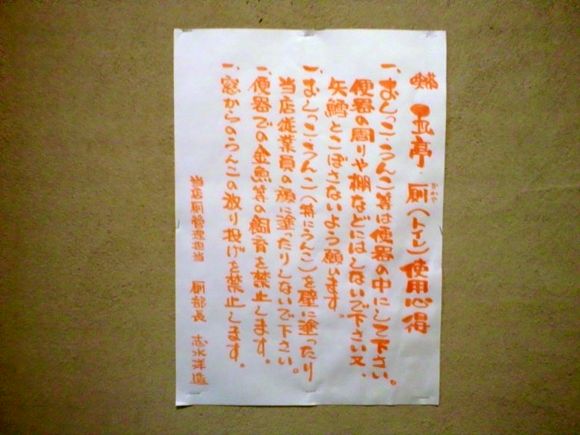 玉亭 厠(トイレ)使用心得
かわや
一、おしっこ・うんこ等は便器の中にして下さい。
便器の周りや棚などにはしないで下さい。又、
矢鱈とこぼさないよう願います。
一、おしっこ・うんこ(特にうんこ)を壁に塗ったり
当店従業員の顔に塗ったりしないで下さい。
一、便器での金魚等の飼育を禁止します。
一、窓からのうんこの放り投げを禁止します。
当店厠管理担当 厠部長 志水洋